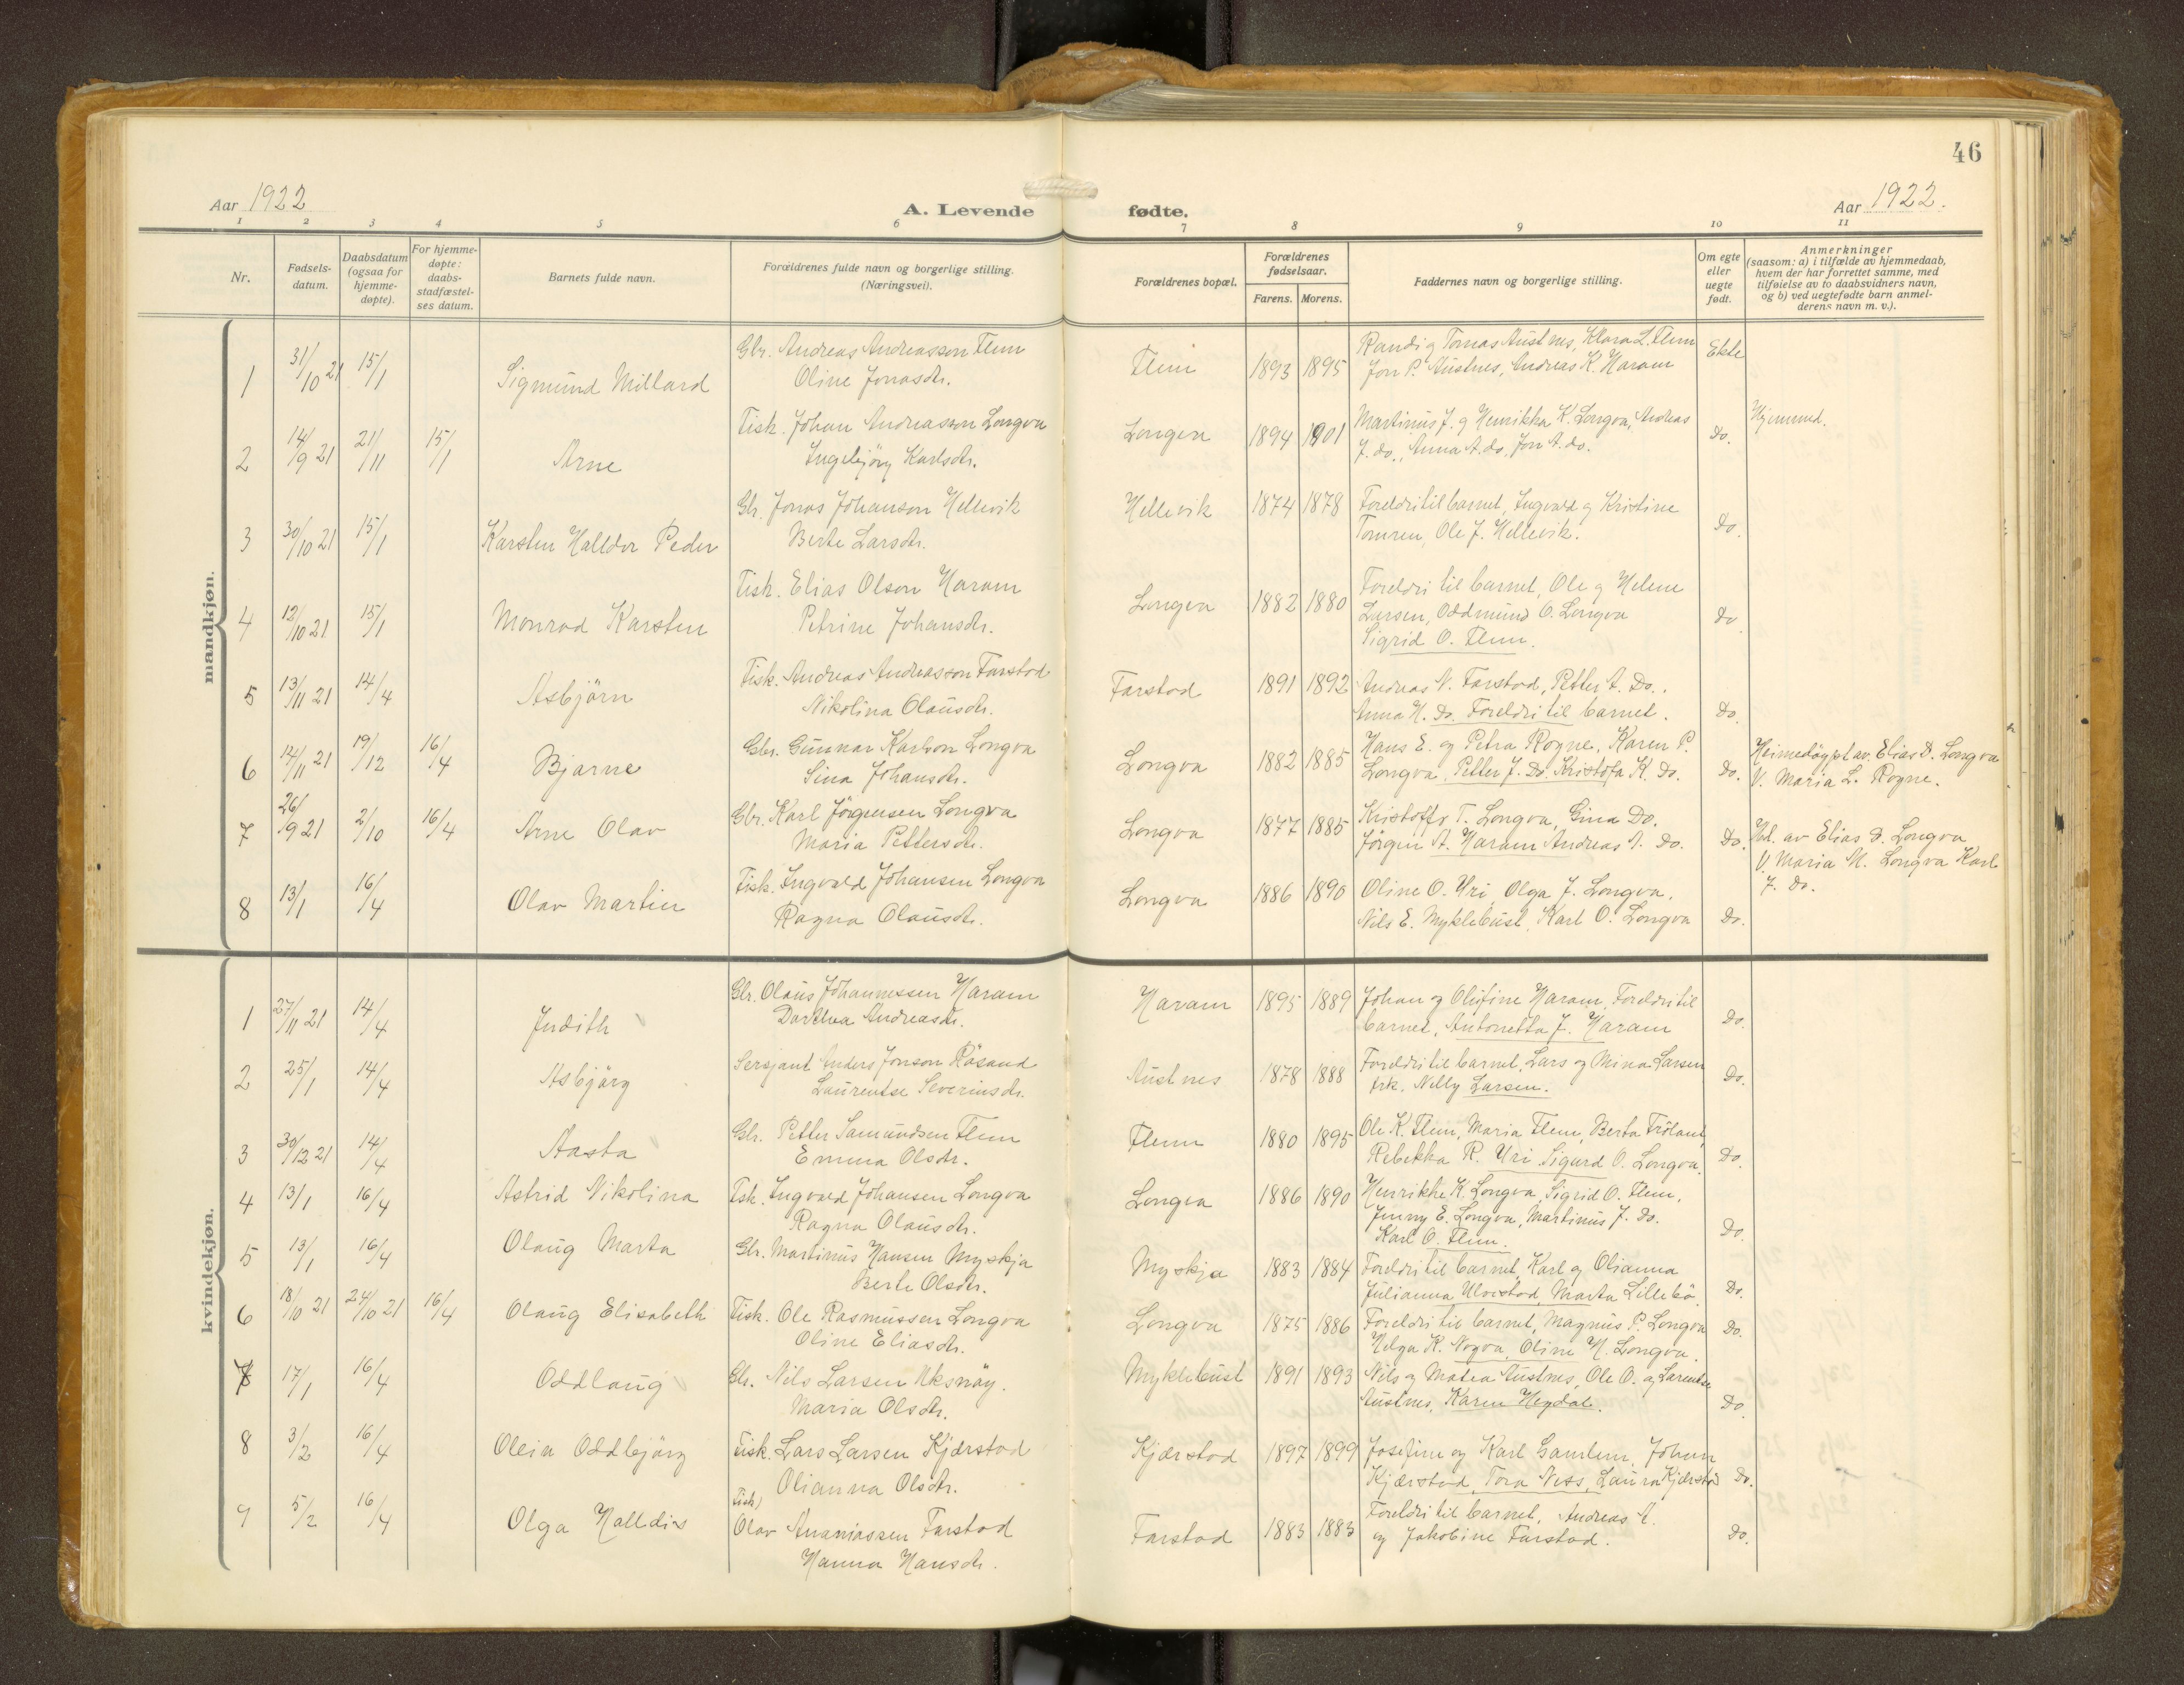 46
Aar 1922
A. Levende fødte.
Aar 1922.
1 2 3 4 5 6 7 8 9 10 11
Nr.
Fødsels-
datum.
Daabsdatum
(ogsaa for
hjemme-
døpte).
For hjemme-
døpte:
daabs-
stadfæstel-
ses datum.
Barnets fulde navn.
Forældrenes fulde navn og borgerlige stilling.
(Næringsvei).
Forældrenes bopæl.
Forældrenes
fødselsaar.
Farens. Morens.
Faddernes navn og borgerlige stilling.
Om egte
eller
uegte
født.
Anmerkninger
(saasom: a) i tilfælde av hjemmedaab,
hvem der har forrettet samme, med
tilføielse av to daabsvidners navn,
og b) ved uegtefødte barn anmel-
derens navn m. v.).
mandkjøn.
1 31/10 21 15/1 Sigmund Millard
Gbr. Andreas Andreasson Flem
Oline Jonasdr.
Flem 1893 1895
Randi og Tomas Austnes, Klara L. Flem
Jon P. Austnes, Andreas K. Haram
Ekte
2 14/9 21 21/11 15/1 Arne
Fisk. Johan Andreasson Longva
Ingebjörg Karlsdr.
Longva 1894 1901
Martinus J. og Henrikka K. Longva, Andreas
J. do., Anna A. do, Jon A. do.
Do.
Hjemmed.
3 30/10 21 15/1 Karsten Halldor Peder
Gbr. Jonas Johanson Hellevik
Berte Larsdr.
Hellevik 1874 1878
Foreldri til barnet, Ingvald og Kristine
Tomren, Ole J. Hellevik.
Do.
4 12/10 21 15/1 Monrad Karsten
Fisk. Elias Olson Haram
Petrine Johansdr.
Longva 1882 1880
Foreldri til barnet, Ole og Helene
Larsen, Oddmund O. Longva
Sigrid O. Flem.
Do
5 13/11 21 14/4 Asbjörn
Fisk. Andreas Andreasson Farstad
Nikolina Olausdr.
Farstad 1891 1892
Andreas N. Farstad, Petter A. Do.
Anna H. Do. Foreldri til barnet.
Do.
6 14/11 21 19/12 16/4 Bjarne
Gbr. Gunnar Karlson Longva
Sina Johansdr.
Longva 1882 1885
Hans E. og Petra Rogne, Karen P.
Longva, Petter J. Do. Kristofa K. Do.
Do.
Heimedöypt av Elias D. Longva
V. Maria L. Rogne.
7 26/9 21 2/10 16/4 Arne Olav
Gbr. Karl Jörgensen Longva
Maria Pettersdr.
Longva 1877 1885
Kristoffer T. Longva, Gina Do.
Jörgen A. Haram Andreas A. Do.
Do.
Hd. av Elias D. Longva
V. Maria M. Longva Karl
J. Do.
8 13/1 16/4 Olav Martin
Fisk. Ingvald Johansen Longva
Ragna Olausdr.
Longva 1886 1890
Oline O. Uri, Olga J. Longva,
Nils E. Myklebust, Karl O. Longva
Do.
kvindekjøn.
1 27/11 21 14/4 Judith
Gbr. Olaus Johannessen Haram
Dorthea Andreasdr.
Haram 1895 1889
Johan og Olufine Haram, Foreldri til
barnet, Antonetta J. Haram
Do.
2 25/1 14/4 Asbjörg
Sersjant Anders Jonson Råsand
Laurentse Severinsdr.
Austnes 1878 1888
Foreldri til barnet, Lars og Mina Larsen
frk. Nelly Larsen.
Do.
3 30/12 21 14/4 Aasta
Gbr. Petter Samundsen Flem
Emma Olsdr.
Flem 1880 1895
Ole K. Flem, Maria Flem, Berta Fröland,
Rebekka R. Uri Sigurd O. Longva.
Do.
4 13/1 16/4 Astrid Nikolina
Fsk. Ingvald Johansen Longva
Ragna Olausdr.
Longva 1886 1890
Henrikke K. Longva, Sigrid O. Flem,
Jenny E. Longva, Martinus J. Do.
Karl O. Flem.
Do.
5 13/1 16/4 Olaug Marta
Gbr. Martinus Hansen Myskja
Berte Olsdr.
Myskja 1883 1884
Foreldri til barnet, Karl og Olianna
Julianna Ulvestad, Marta Lillebö.
Do.
6 18/10 21 24/10 21 16/4 Olaug Elisabeth
Fisk. Ole Rasmussen Longva
Oline Eliasdr.
Longva 1875 1886
Foreldri til barnet, Magnus P. Longva
Helga K. Nogva, Oline N. Longva.
Do.
7 17/1 16/4 Oddlaug
Gbr. Nils Larsen Uksnöy.
Maria Olsdr.
Myklebust 1891 1893
Nils og Matea Austnes, Ole O. og Larentse
Austnes, Karen Hegdal.
Do
8 3/2 16/4 Olein Oddbjörg
Fisk. Lars Larsen Kjærstad
Olianna Olsdr.
Kjærstad 1897 1899
Josefine og Karl Gamlem, Johan
Kjærstad, Tora Ness, Laura Kjærstad
Do.
9 5/2 16/4 Olga Halldis
Fisk)
Olav Ananiassen Farstad
Hanna Hansdr.
Farstad 1883 1883
Foreldri til barnet, Andreas A.
og Jakobine Farstad.
Do.